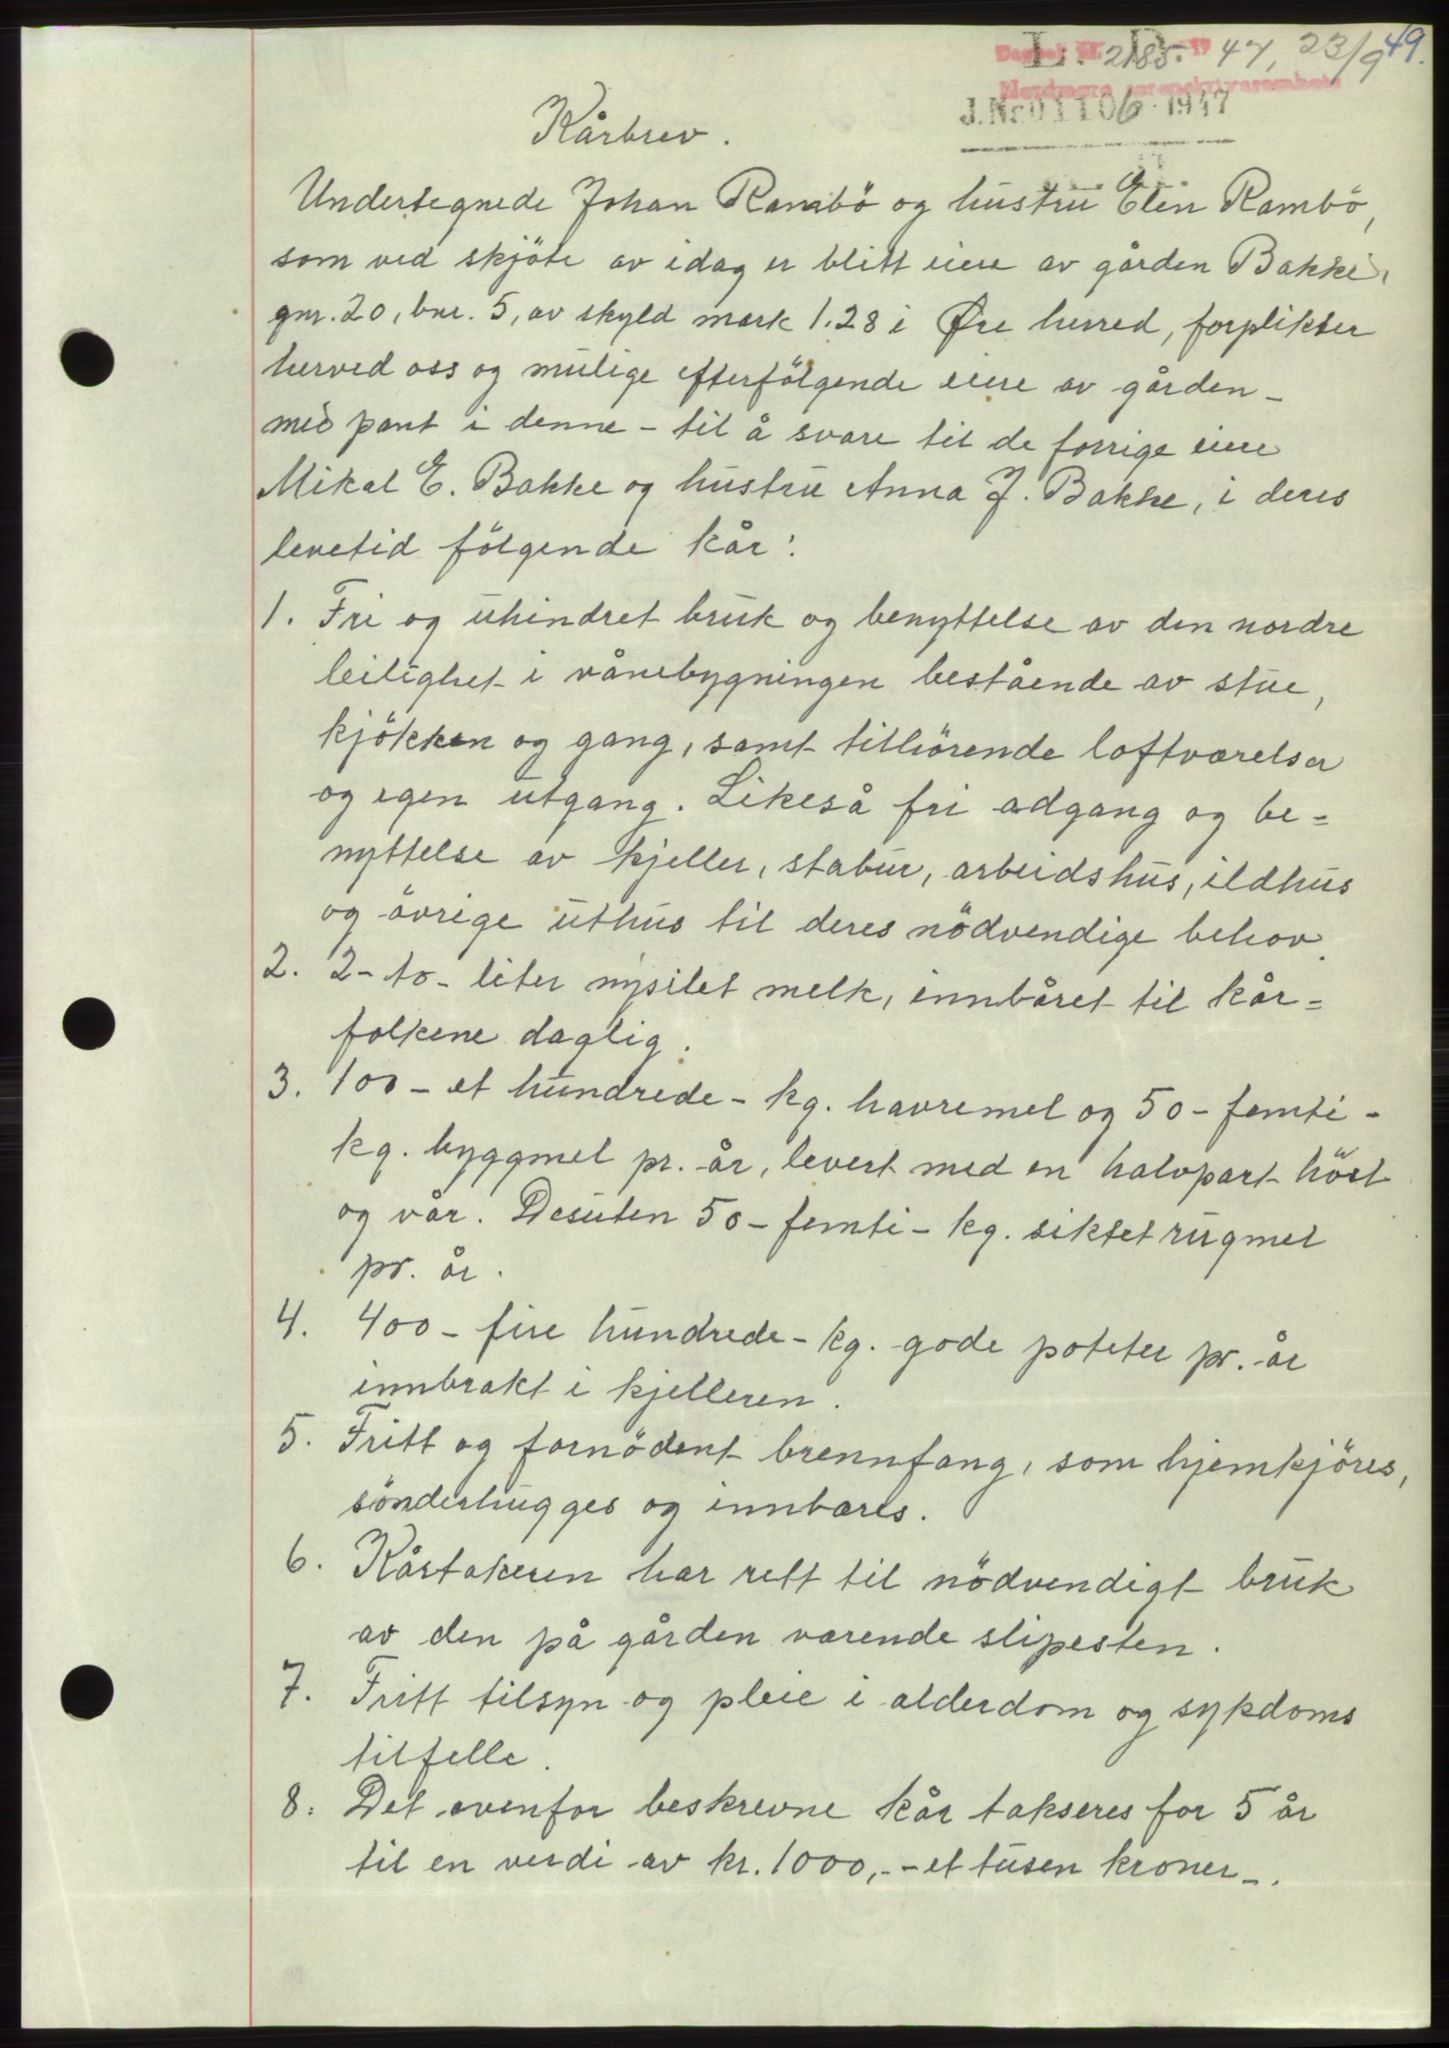 49.
L. D.
Dagbok nr. 2185. 19 47, 23/9
Nordmøre sorenskriverembete
J.Nr. 01106 1947
Kårbrev.
Undertegnede Johan Rambö og hustru Elen Rambö,
som ved skjöte av idag er blitt eiere av gården Bakke,
gnr. 20, bnr. 5, av skyld mark 1.28 i Øre herred, forplikter
herved oss og mulige efterfölgende eiere av gården -
med pant i denne - til å svare til de forrige eiere
Mikal E. Bakke og hustru Anna J. Bakke, i deres
levetid fölgende kår:
1. Fri og uhindret bruk og benyttelse av den nordre
leilighet i vånebygningen bestående av stue,
kjökken og gang, samt tilhörende loftværelser
og egen utgang. Likeså fri adgang og be=
nyttelse av kjeller, stabur, arbeidshus, ildhus
og övrige uthus til deres nödvendige behov.
2. 2 - to - liter nysilet melk, innbåret til kår=
folkene daglig.
3. 100 - et hundrede - kg. havremel og 50 - femti -
kg. byggmel pr. år, levert med en halvpart höst
og vår. Desuten 50 - femti - kg. siktet rugmel
pr. år.
4. 400 - fire hundrede - kg. gode poteter pr. år
innbrakt i kjelleren.
5. Fritt og fornödent brennfang, som hjemkjöres,
sönderhugges og innbæres.
6. Kårtakeren har rett til nödvendigt bruk
av den på gården værende slipesten.
7. Fritt tilsyn og pleie i alderdom og sykdoms
tilfelle.
8. Det ovenfor beskrevne kår takseres for 5 år
til en verdi av kr. 1000,- - et tusen kroner -.